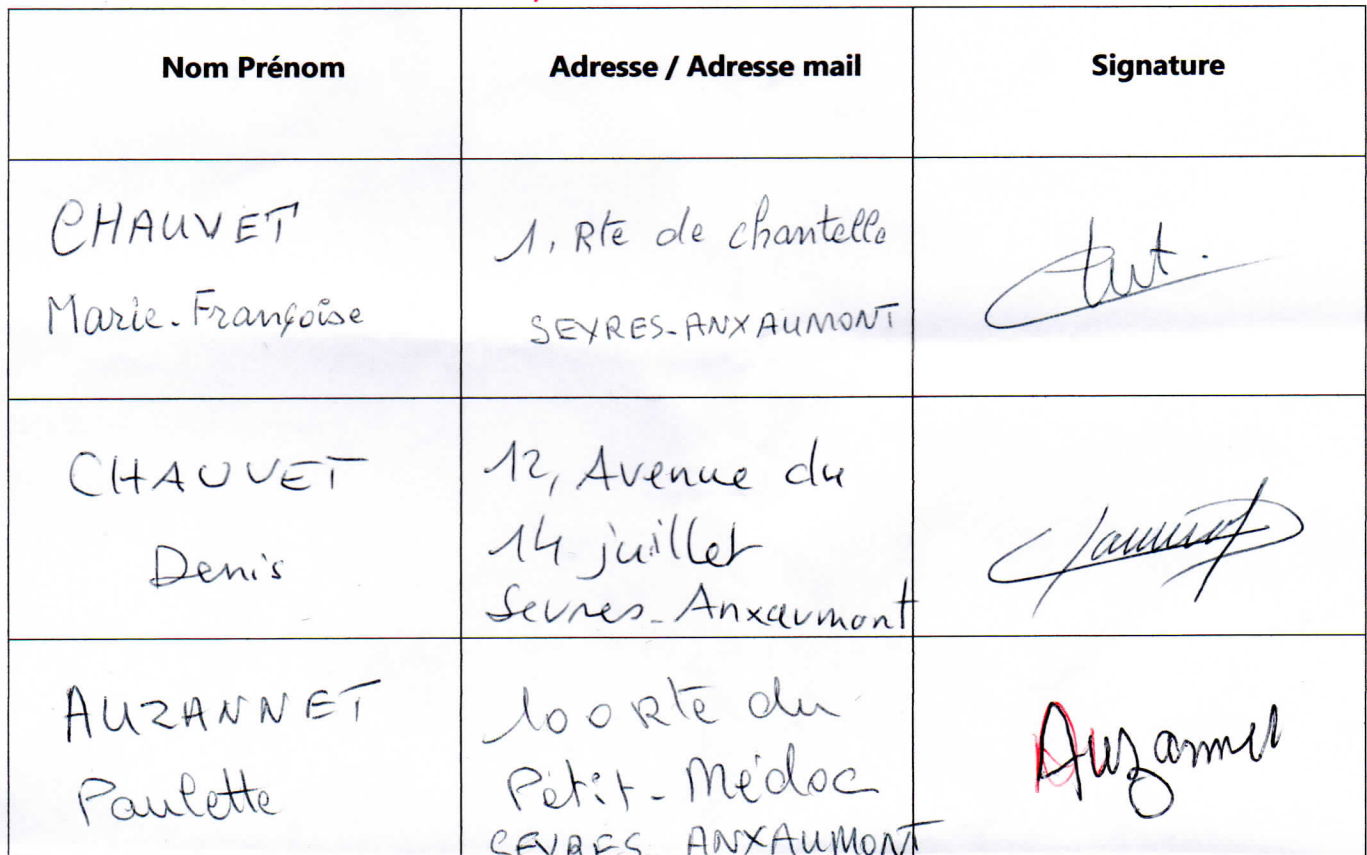 Nom Prénom
Adresse / Adresse mail
Signature
CHAUVET
Marie-Françoise
1, Rte de chantelle
SEVRES-ANXAUMONT
CHAUVET
Denis
12, Avenue du
14 juillet
Sevres-Anxaumont
AUZANNET
Paulette
100 Rte du
Petit-Médoc
SEVRES-ANXAUMONT
Auzannet